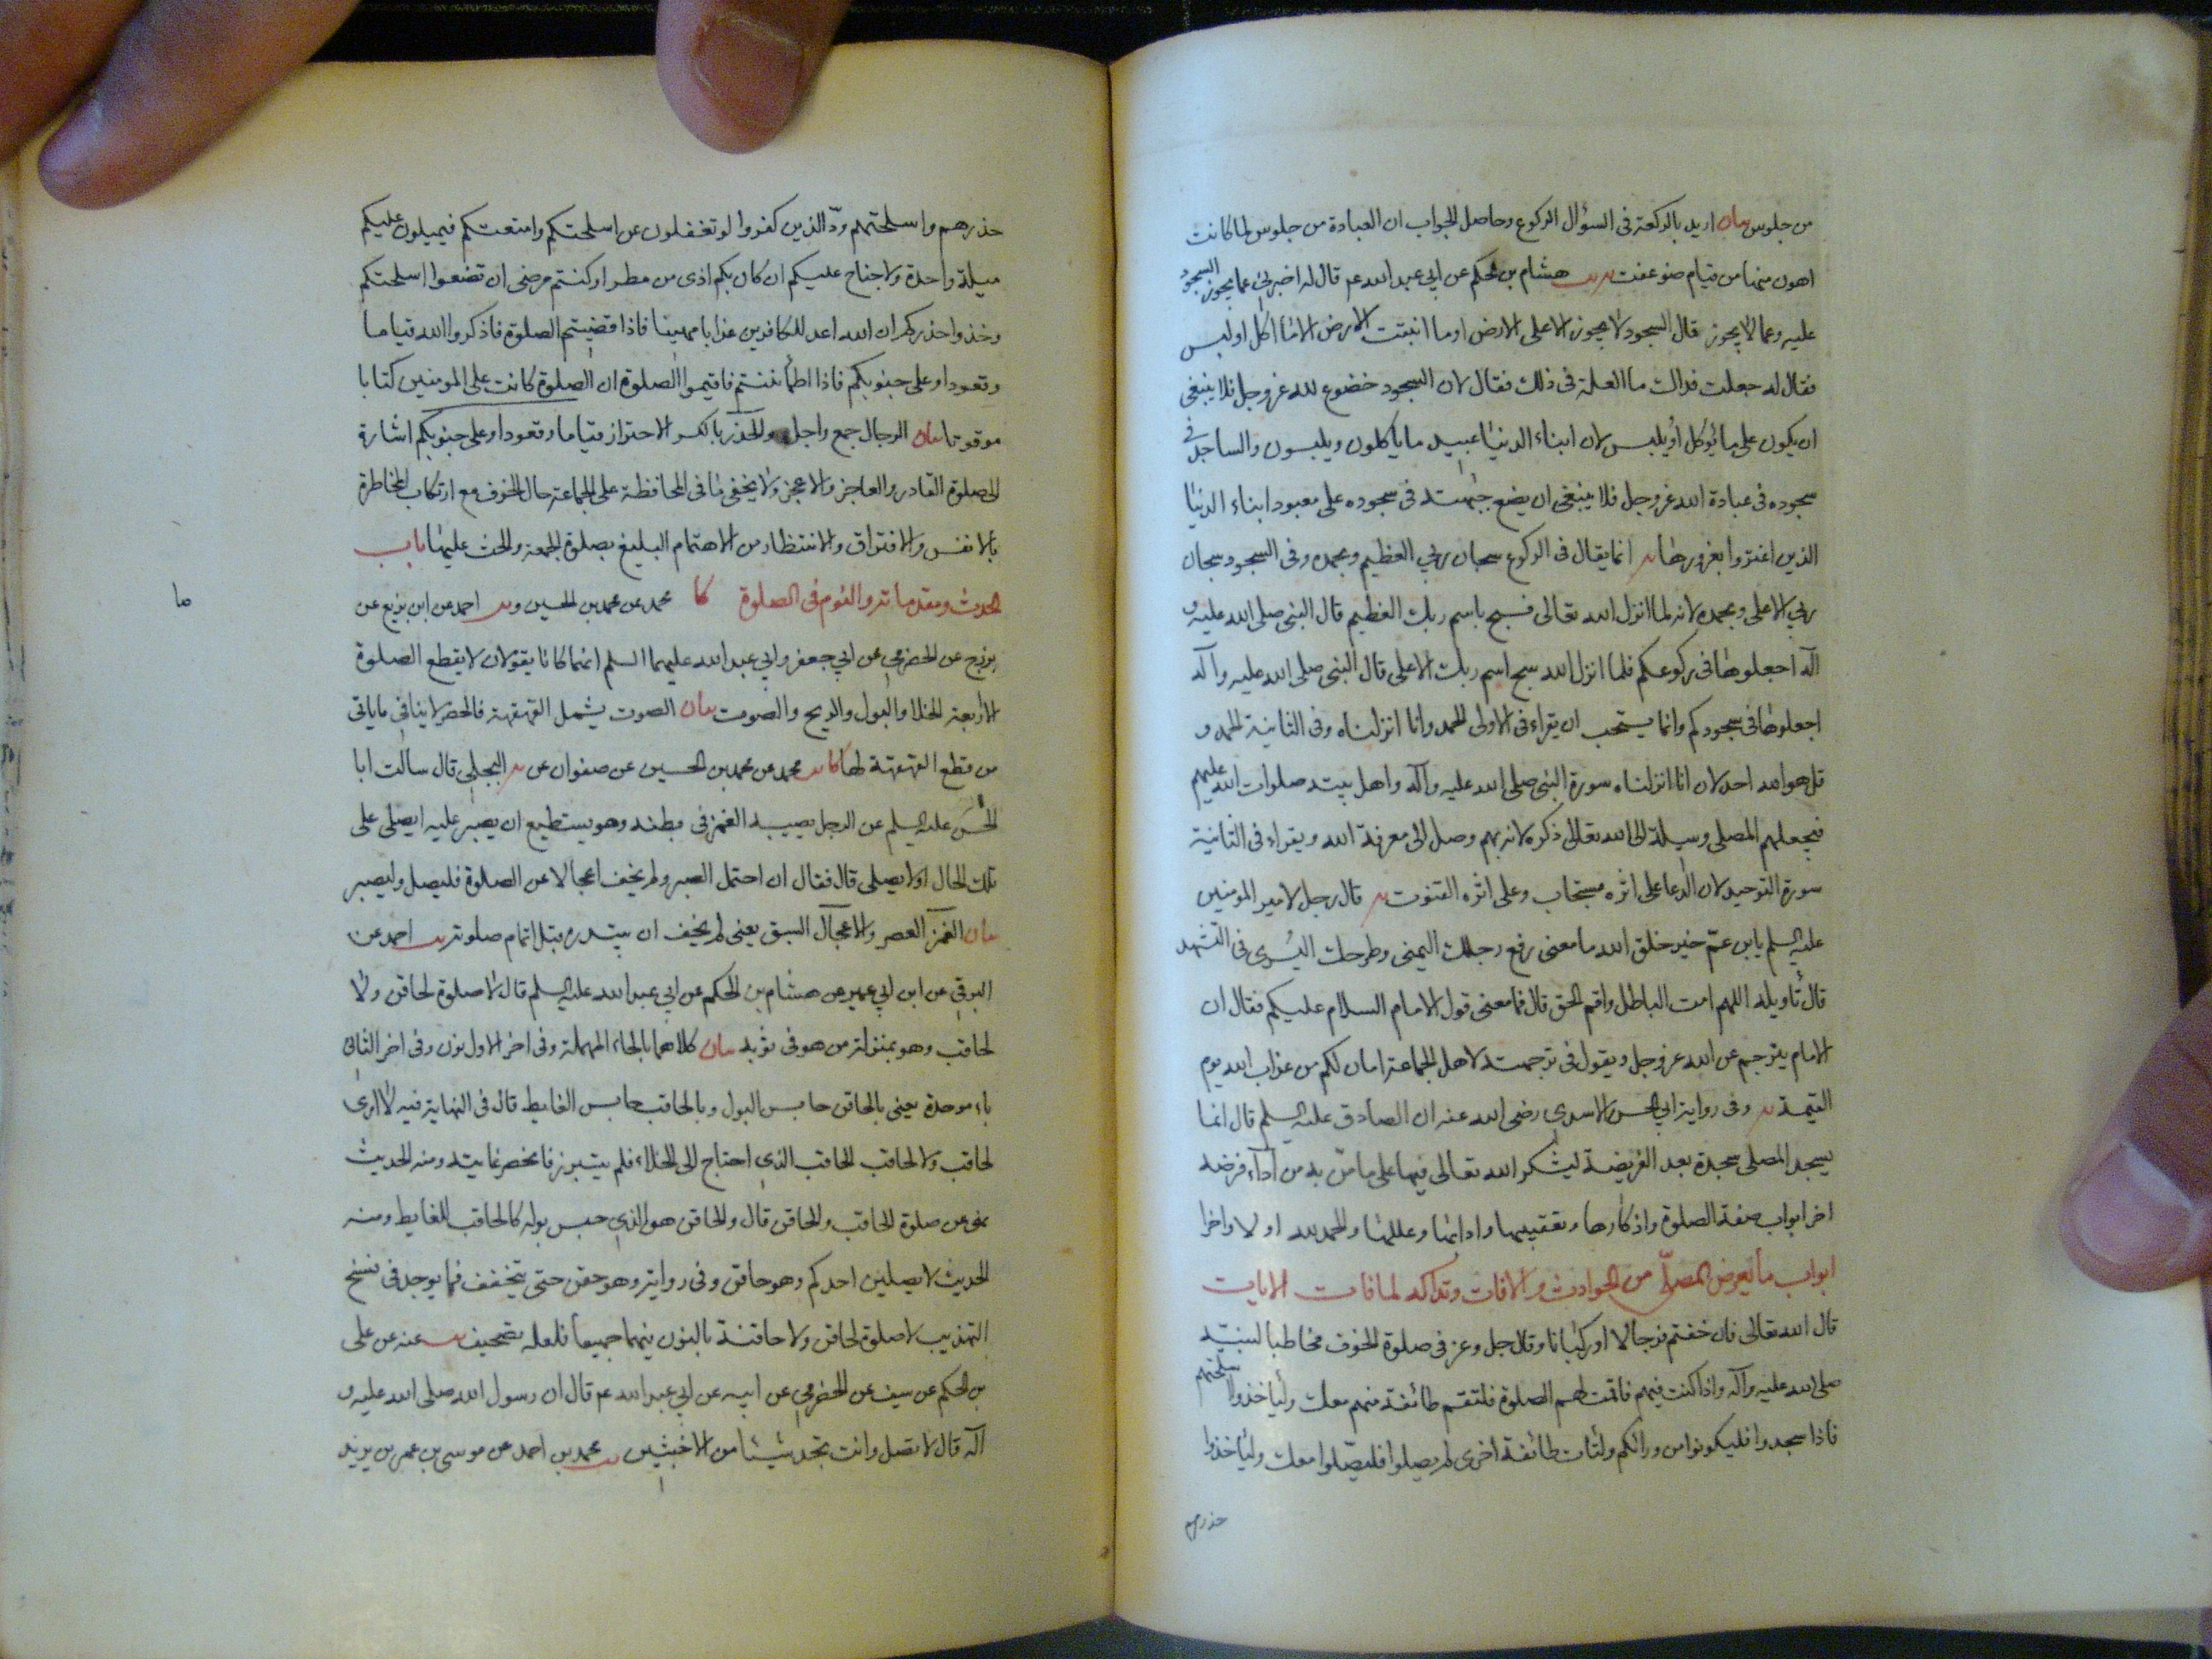 من جلوس بيان اريد بالركعة فى السؤال الركوع وحاصل الجواب ان العبادة من جلوس لما كانت
اهون منها من قيام ضوعفت يه هشام بن الحكم عن ابي عبد الله عم قال له اخبرني عما يجوز السجود
عليه وعما لا يجوز قال السجود لا يجوز الا على الارض او ما انبتت الارض الا ما اكل او لبس
فقال له جعلت فداك ما العلة فى ذلك فقال لان السجود خضوع لله عز وجل فلا ينبغى
ان يكون على ما يؤكل او يلبس لان ابناء الدنيا عبيد ما ياكلون ويلبسون والساجد فى
سجوده فى عبادة الله عز وجل فلا ينبغى ان يضع جبهته فى سجوده على معبود ابناء الدنيا
الذين اغتروا بغرورها يه انما يقال فى الركوع سبحان ربي العظيم وبحمده وفى السجود سبحان
ربي الاعلى وبحمده لانه لما انزل الله تعالى فسبح باسم ربك العظيم قال النبى صلى الله عليه و
آله اجعلوها فى ركوعكم فلما انزل الله سبح اسم ربك الاعلى قال النبى صلى الله عليه وآله
اجعلوها فى سجودكم وانما يستحب ان يقراء فى الاولى الحمد وانا انزلناه وفى الثانية الحمد و
قل هو الله احد لان انا انزلناه سورة النبى صلى الله عليه وآله واهل بيته صلوات الله عليهم
فيجعلهم المصلى وسيلة الى الله تعالى ذكره لانه بهم وصل الى معرفة الله ويقراء فى الثانية
سورة التوحيد لان الدعا على اثره مستجاب وعلى اثره القنوت يه قال رجل لامير المومنين
عليه السلم يابن عم خير خلق الله ما معنى رفع رجلك اليمنى وطرحك اليسرى فى التشهد
قال تأويله اللهم امت الباطل واقم الحق قال فما معنى قول الامام السلام عليكم فقال ان
الامام يترجم عن الله عز وجل ويقول فى ترجمته لاهل الجماعة امان لكم من عذاب الله يوم
القيمة يه وفى رواية ابي الحسن الاسدى رضى الله عنه ان الصادق عليه السلم قال انما
يسجد المصلى سجدة بعد الفريضة ليشكر الله تعالى فيها على ما من به من آداء فرضه
اخر ابواب صفة الصلوة واذكارها وتعقيبها وادابها وعللها والحمد لله اولا واخرا
ابواب ما يعرض المصلّى من الحوادث والافات وتداركه لما فات الايات
قال الله تعالى فان خفتم فرجالا او ركبانا وقال جل وعز فى صلوة الخوف مخاطبا لنبيه
صلى الله عليه وآله واذا كنت فيهم فاقمت لهم الصلوة فلتقم طائفة منهم معك وليأخذوا اسلحتهم
فاذا سجدوا فليكونوا من ورائكم ولتأت طائفة اخرى لم يصلوا فليصلوا معك وليأخذوا
حذرهم
حذرهم واسلحتهم ودّ الذين كفروا لو تغفلون عن اسلحتكم وامتعتكم فيميلون عليكم
ميلة واحدة ولا جناح عليكم ان كان بكم اذى من مطر او كنتم مرضى ان تضعوا اسلحتكم
وخذوا حذركم ان الله اعد للكافرين عذابا مهينا فاذا قضيتم الصلوة فاذكروا الله قياما
وقعودا وعلى جنوبكم فاذا اطمأننتم فاقيموا الصلوة ان الصلوة كانت على المومنين كتابا
موقوتا بيان الرجال جمع راجل والحذر بالكسر الاحتراز قياما وقعودا وعلى جنوبكم اشارة
الى صلوة القادر والعاجز والاعجز ولا يخفى ما فى المحافظة على الجماعة حال الخوف مع ارتكاب المخاطرة
بالانفس والافتراق والانتظار من الاهتمام البليغ بصلوة الجمعة والحث عليها باب
الحدث ومقدماته والنوم فى الصلوة كا محمد عن محمد بن الحسين ويب احمد عن ابن بزيع عن
بزرج عن الحضرمى عن ابي جعفر وابي عبد الله عليهما السلم انهما كانا يقولان لا يقطع الصلوة
الا اربعة الخلا والبول والريح والصوت بيان الصوت يشمل القهقهة فالحصر لا ينافى ما ياتى
من قطع القهقهة لها كا يب محمد عن محمد بن الحسين عن صفوان عن يه البجلى قال سالت ابا
الحسن عليه السلم عن الرجل يصيبه الغمز فى بطنه وهو يستطيع ان يصبر عليه ايصلى على
تلك الحال او لا يصلى قال فقال ان احتمل الصبر ولم يخف اعجالا عن الصلوة فليصل وليصبر
بيان الغمز العصر والاعجال السبق يعنى لم يخف ان يبتدره قبل اتمام صلوته يب احمد عن
البرقى عن ابن ابي عمير عن هشام بن الحكم عن ابي عبد الله عليه السلم قال لا صلوة لحاقن ولا
لحاقب وهو بمنزلة من هو فى ثوبه بيان كلاهما بالحاء المهملة وفى اخر الاول نون وفى اخر الثانى
باء موحدة يعنى بالحاقن حابس البول وبالحاقب حابس الغايط قال فى النهاية فيه لا ارى
لحاقب ولا لحاقب الحاقب الذى احتاج الى الخلاء فلم يتبرز فانحصر غايته ومنه الحديث
نهى عن صلوة الحاقب والحاقن قال والحاقن هو الذى حبس بوله كالحاقب للغايط ومنه
الحديث لا يصلين احدكم وهو حاقن وفى رواية وهو حقن حتى يتخفف فما يوجد فى نسخ
التهذيب لا صلوة لحاقن ولا حاقنة بالنون فيهما جميعا فلعله تصحيف يب عنه عن على
بن الحكم عن سيف عن الحضرمى عن ابيه عن ابي عبد الله عم قال ان رسول الله صلى الله عليه و
آله قال لا تصل وانت تجد شيئا من الاخبثين يب محمد بن احمد عن موسى بن عمر بن يزيد